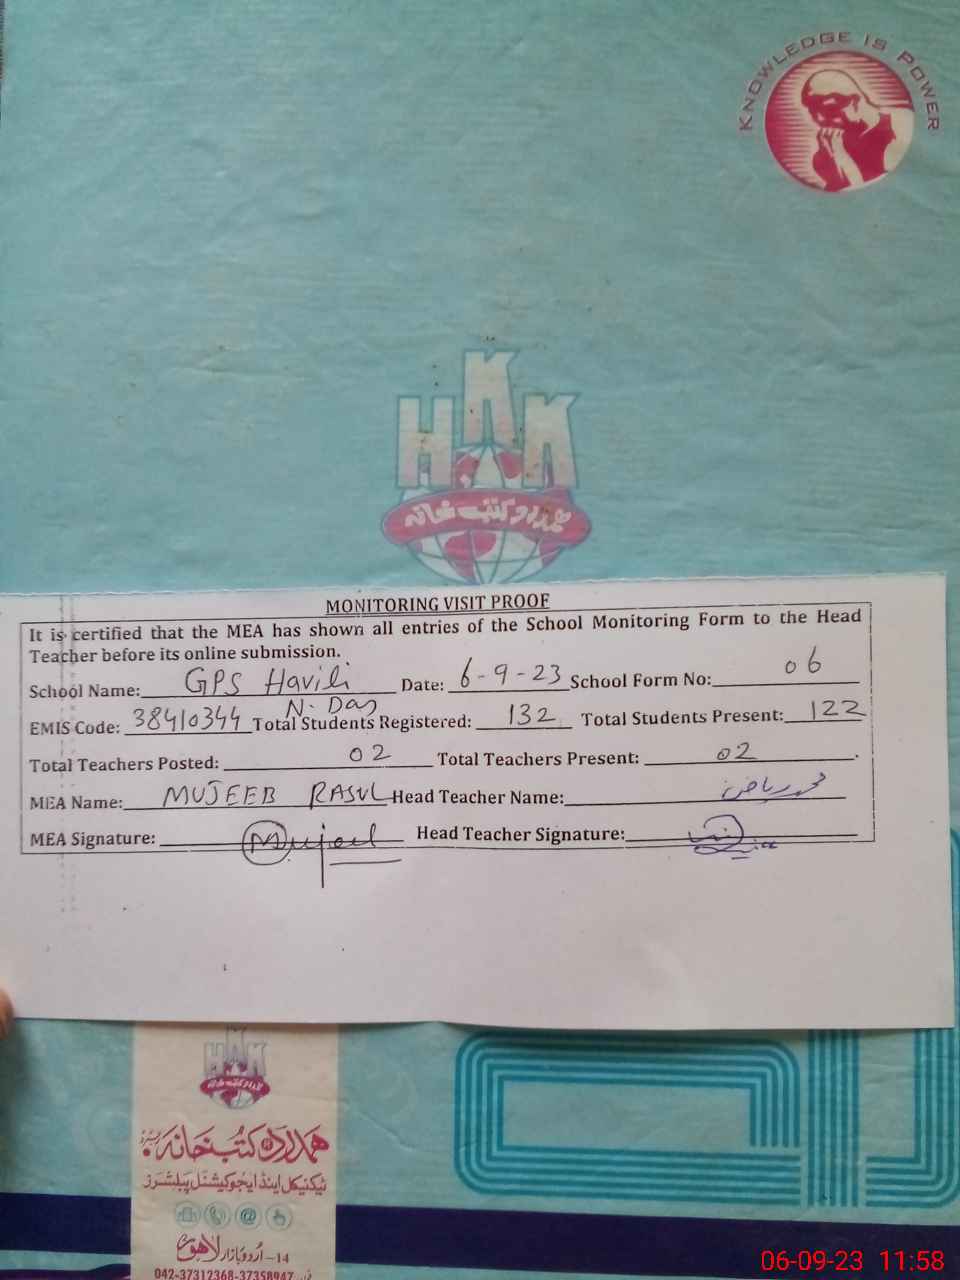 KNOWLEDGE IS POWER
HKK
ہمدرد کتب خانہ
MONITORING VISIT PROOF
It is certified that the MEA has shown all entries of the School Monitoring Form to the Head
Teacher before its online submission.
School Name: GPS Havili Date: 6-9-23 School Form No: 06
N. Das
EMIS Code: 38410344 Total Students Registered: 132 Total Students Present: 122
Total Teachers Posted: 02 Total Teachers Present: 02.
MEA Name: MUJEEB RASUL Head Teacher Name: محمد ریاض
MEA Signature: Mujeeb Head Teacher Signature:
HKK
ہمدرد کتب خانہ
ہمدرد کتب خانہ
ٹیکنیکل اینڈ ایجوکیشنل پبلشرز
14-اُردو بازار لاہور
042-37312368-37358947
06-09-23 11:58